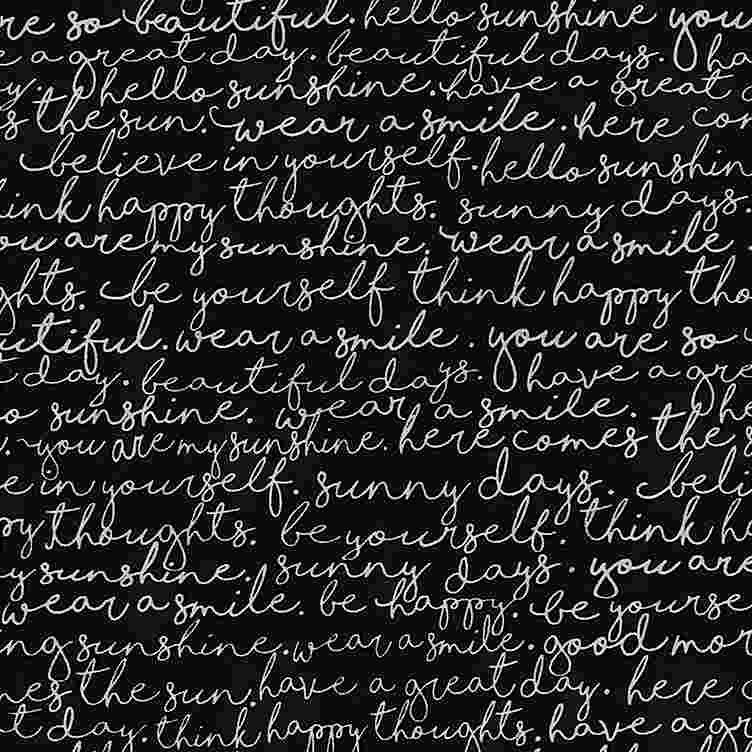 re so beautiful. hello sunshine you
e a great day. beautiful days. ha
y. hello sunshine. have a great
s the sun. wear a smile. here com
believe in yourself. hello sunshin
ink happy thoughts. sunny days.
ou are my sunshine. wear a smile
ghts. be yourself think happy tho
utiful. wear a smile. you are so
day. beautiful days. have a gre
o sunshine. wear a smile. h
. you are my sunshine. here comes the s
e in yourself. sunny days. beli
py thoughts. be yourself. think h
y sunshine. sunny days. you are
wear a smile. be happy. be yourse
ng sunshine. wear a smile. good mor
mes the sun. have a great day. here
t day. think happy thoughts. have a gr